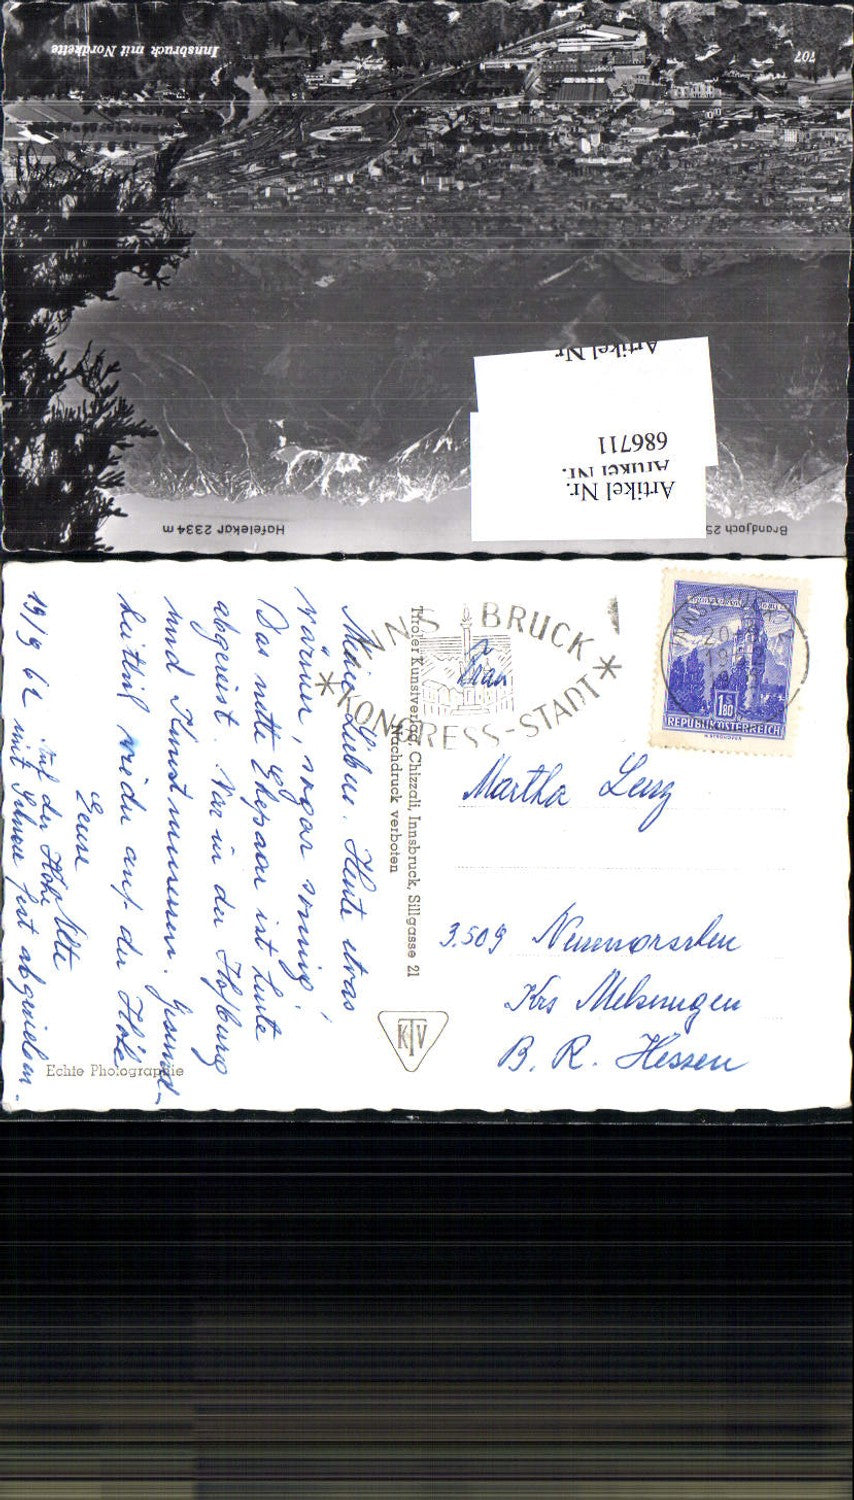 Innsbruck mit Nordkette
707
Artikel Nr.
686711
Artikel Nr.
Artikel Nr.
Hafelekar 2334 m
Brandjoch 25
INNSBRUCK
*KONGRESS-STADT*
1.80
REPUBLIK ÖSTERREICH
Frau
Martha Lenz
3509 Neumorschen
Krs Melsungen
B. R. Hessen
Tiroler Kunstverlag, Chizzali, Innsbruck, Sillgasse 21
Nachdruck verboten
KTV
Echte Photographie
19/9 62
Meine Lieben. Heute etwas
wärmer, sogar sonnig!
Das nette Ehepaar ist heute
abgereist. War in der Hofburg
und Kunstmuseum. Gesund-
heitlich wieder auf der Höhe
Eure
Auf der Höhe
mit Schnee fest